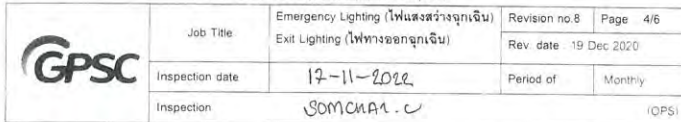 GPSC
Job Title
Emergency Lighting (ไฟแสงสว่างฉุกเฉิน)
Exit Lighting (ไฟทางออกฉุกเฉิน)
Revision no.8
Page 4/6
Rev. date 19 Dec 2020
Inspection date
17-11-2022
Period of
Monthly
Inspection
SOMCHAI.C
(OPS)